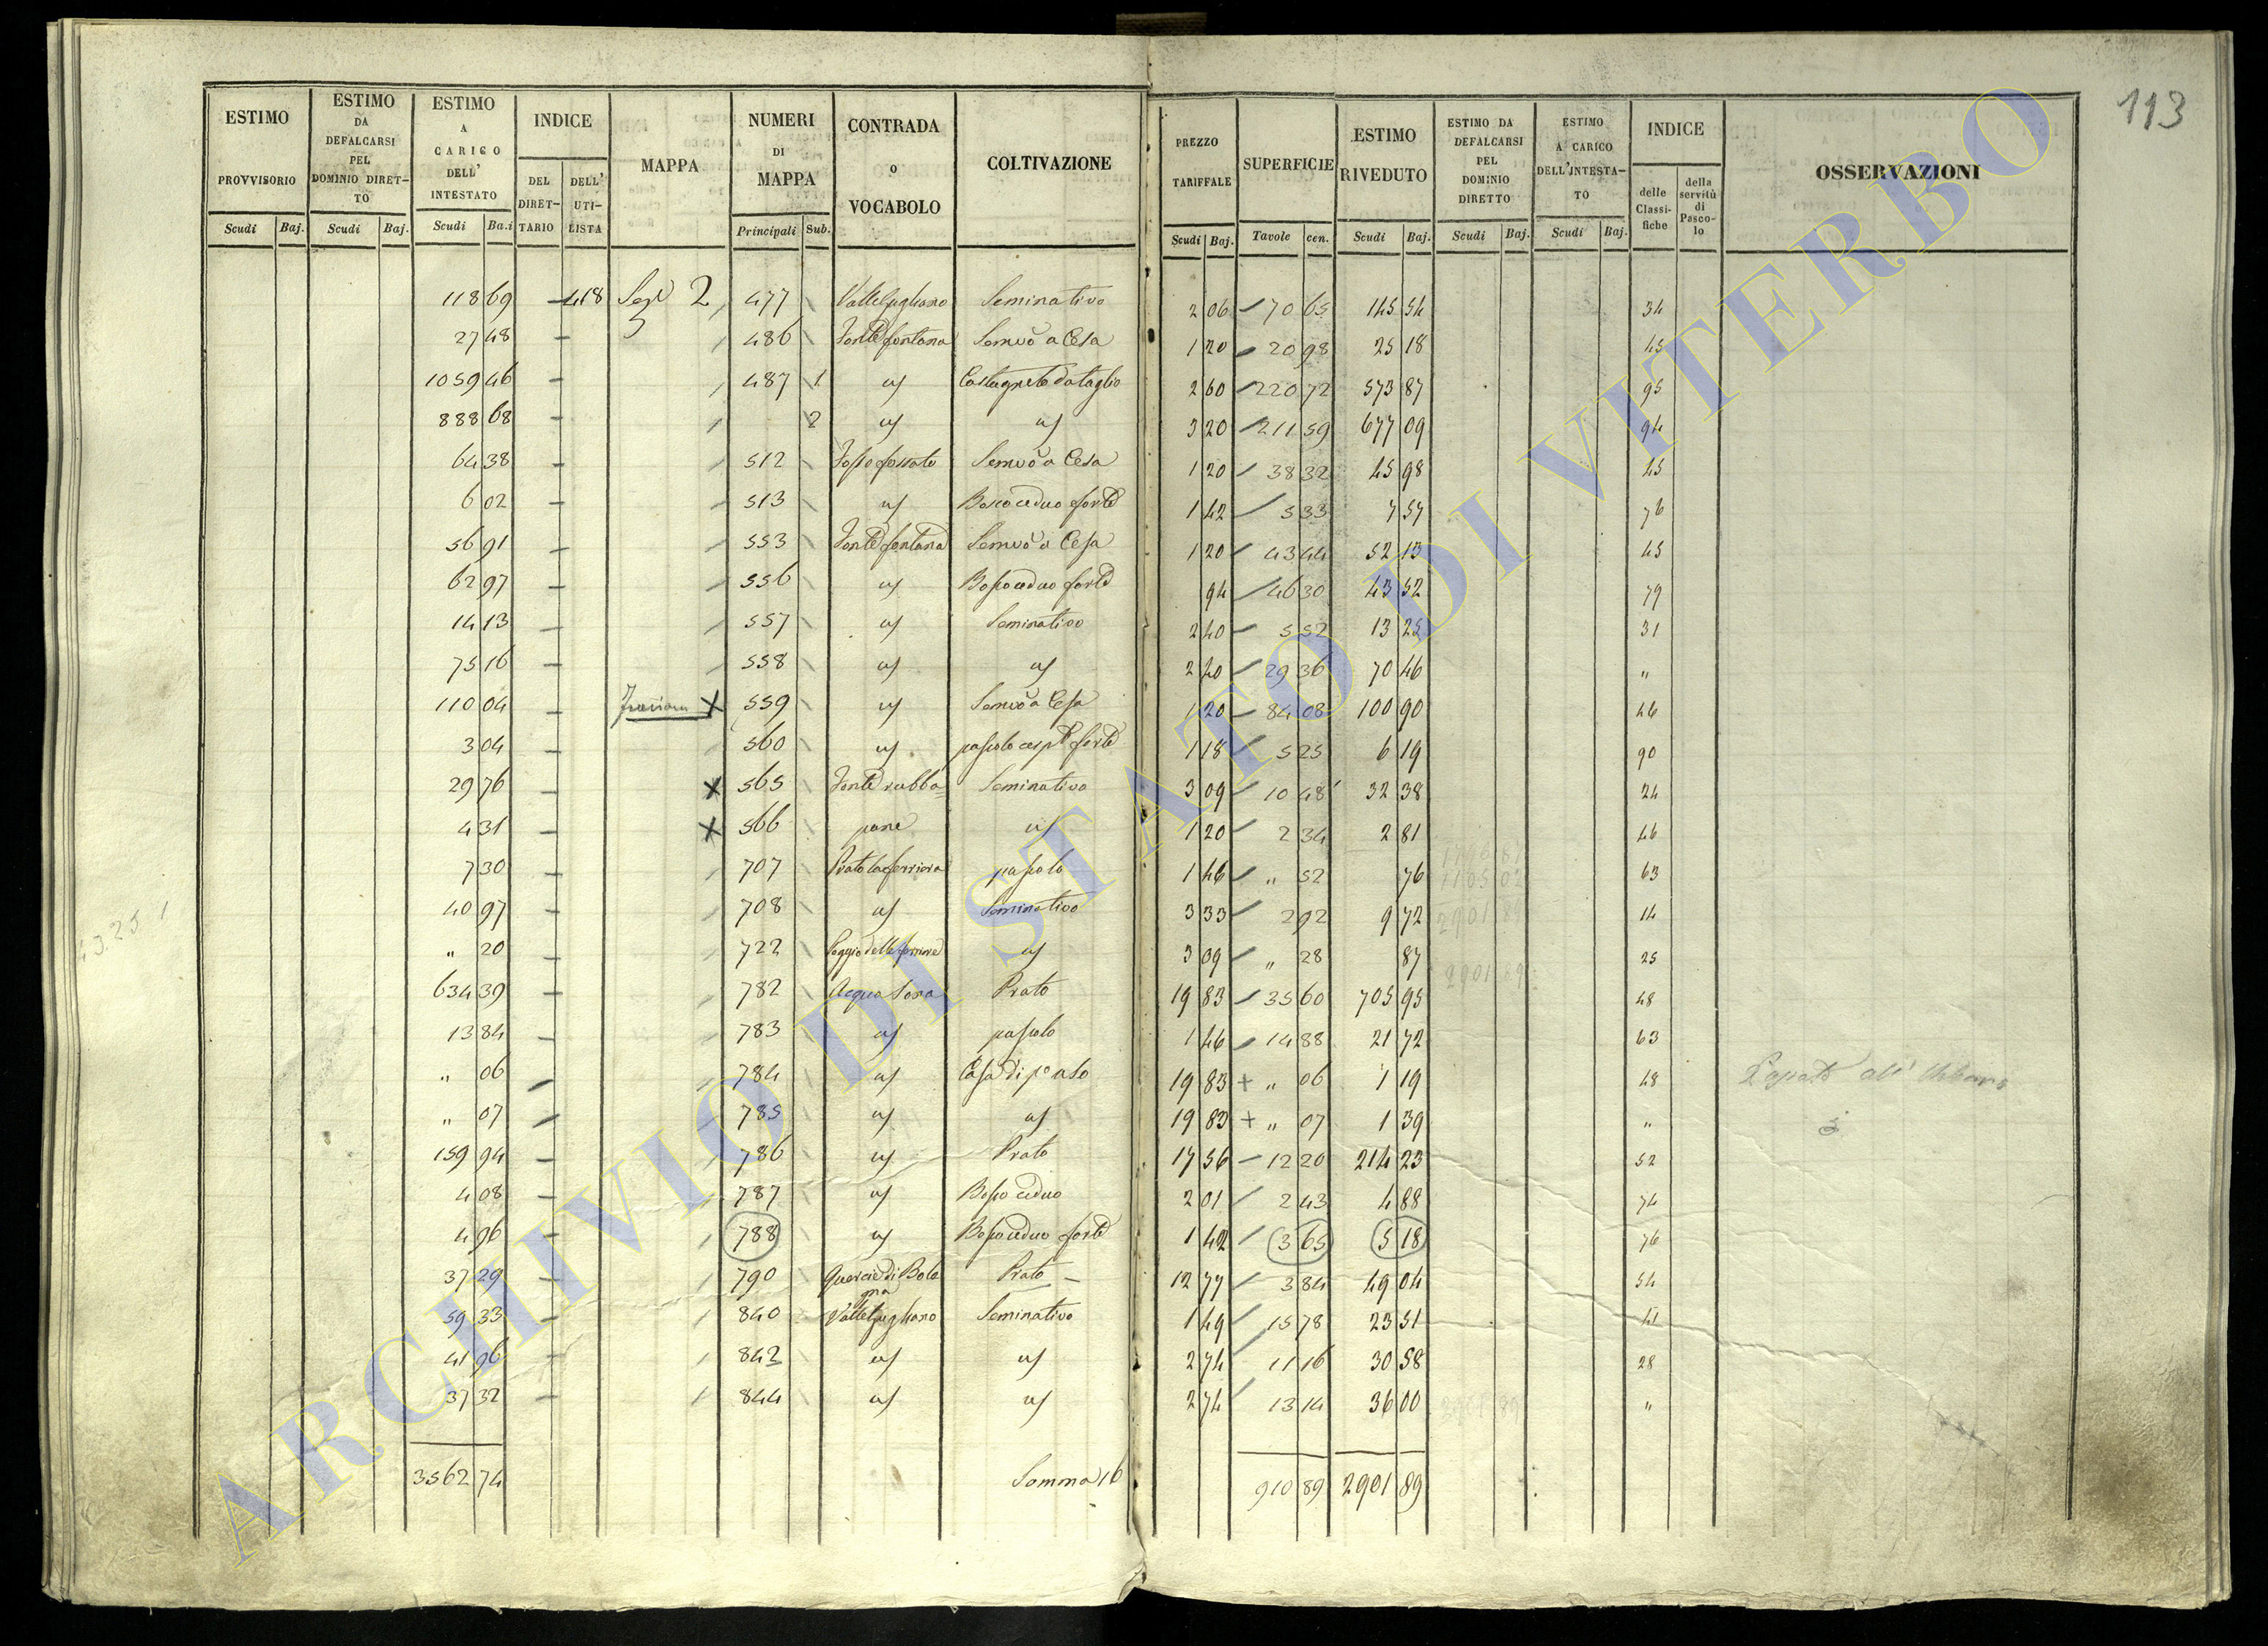 113
ESTIMO PROVVISORIO Scudi Baj.
ESTIMO DA DEFALCARSI PEL DOMINIO DIRETTO Scudi Baj.
ESTIMO A CARICO DELL' INTESTATO Scudi Ba.i
INDICE DEL DIRETTARIO DELL' UTILISTA
MAPPA
NUMERI DI MAPPA Principali Sub.
CONTRADA o VOCABOLO
COLTIVAZIONE
PREZZO TARIFFALE Scudi Baj.
SUPERFICIE Tavole cen.
ESTIMO RIVEDUTO Scudi Baj.
ESTIMO DA DEFALCARSI PEL DOMINIO DIRETTO Scudi Baj.
ESTIMO A CARICO DELL'INTESTATO Scudi Baj.
INDICE delle Classifiche della servitù di Pascolo
OSSERVAZIONI
118 69 418 2 477 Seminativo 2 06 70 65 145 54 34
27 48 486 Fonte fontana Semvo a Cesa 1 20 20 98 25 18 45
1059 46 487 1 Castagneto da taglio 2 60 220 72 573 87 95
888 68 2 3 20 211 59 677 09 94
64 38 512 Semvo a Cesa 1 20 38 32 45 98 45
6 02 513 Bosco ceduo forte 1 42 5 33 7 57 76
56 91 553 Fonte fontana Semvo a Cesa 1 20 43 44 52 13 45
62 97 556 Bosco ceduo forte 94 46 30 43 52 79
14 13 557 Seminativo 2 40 5 52 13 25 31
75 16 558 2 40 29 36 70 46 "
110 04 559 Semvo a Cesa 1 20 84 08 100 90 46
3 04 560 pascolo cesp forte 1 18 5 25 6 19 90
29 76 565 Fonte rubba= Seminativo 3 09 10 48 32 38 24
4 31 566 pane 1 20 2 34 2 81 46
7 30 707 Prato la ferriera pascolo 1 46 " 52 76 63
40 97 708 Seminativo 3 33 2 92 9 72 14
" 20 722 Poggio delle ferriere 3 09 " 28 87 25
634 39 782 Acqua Sona Prato 19 83 35 60 705 95 48
13 84 783 pascolo 1 46 14 88 21 72 63
" 06 784 Casa di 19 83 + " 06 1 19 48
" 07 785 19 83 + " 07 1 39 "
159 94 786 Prato 17 56 12 20 214 23 52
4 08 787 Bosco ceduo 2 01 2 43 4 88 74
4 96 788 Bosco ceduo forte 1 42 3 65 5 18 76
37 29 790 Quercie di Bologna Prato 12 77 3 84 49 04 54
59 33 840 Seminativo 1 49 15 78 23 51 41
41 96 842 2 74 11 16 30 58 28
37 32 844 2 74 13 14 36 00 "
3562 74 Somma 16 910 89 2901 89
ARCHIVIO DI STATO DI VITERBO